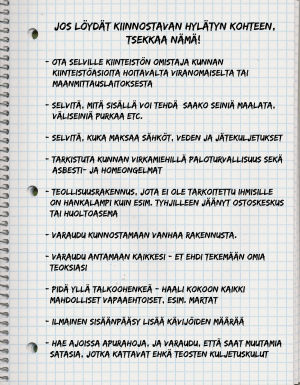 JOS LÖYDÄT KIINNOSTAVAN HYLÄTYN KOHTEEN,
TSEKKAA NÄMÄ!
- OTA SELVILLE KIINTEISTÖN OMISTAJA KUNNAN
KIINTEISTÖASIOITA HOITAVALTA VIRANOMAISELTA TAI
MAANMITTAUSLAITOKSESTA
- SELVITÄ, MITÄ SISÄLLÄ VOI TEHDÄ SAAKO SEINIÄ MAALATA,
VÄLISEINIÄ PURKAA ETC.
- SELVITÄ, KUKA MAKSAA SÄHKÖT, VEDEN JA JÄTEKULJETUKSET
- TARKISTUTA KUNNAN VIRKAMIEHILLÄ PALOTURVALLISUUS SEKÄ
ASBESTI- JA HOMEONGELMAT
- TEOLLISUUSRAKENNUS, JOTA EI OLE TARKOITETTU IHMISILLE
ON HANKALAMPI KUIN ESIM. TYHJILLEEN JÄÄNYT OSTOSKESKUS
TAI HUOLTOASEMA
- VARAUDU KUNNOSTAMAAN VANHAA RAKENNUSTA.
- VARAUDU ANTAMAAN KAIKKESI - ET EHDI TEKEMÄÄN OMIA
TEOKSIASI
- PIDÄ YLLÄ TALKOOHENKEÄ - HAALI KOKOON KAIKKI
MAHDOLLISET VAPAAEHTOISET, ESIM. MARTAT
- ILMAINEN SISÄÄNPÄÄSY LISÄÄ KÄVIJÖIDEN MÄÄRÄÄ
- HAE AJOISSA APURAHOJA, JA VARAUDU, ETTÄ SAAT MUUTAMIA
SATASIA, JOTKA KATTAVAT EHKÄ TEOSTEN KULJETUSKULUT